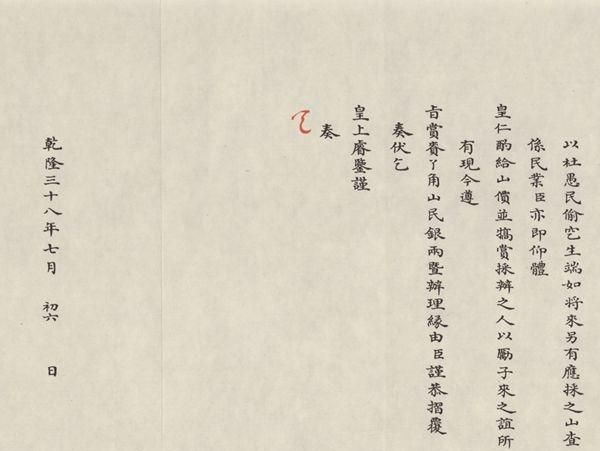 以杜愚民偷穵生端如將來另有應採之山查
係民業臣亦即仰體
皇仁酌給山價並犒賞採辦之人以勵子來之誼所
有現今遵
旨賞賚丫角山民銀兩暨辦理緣由臣謹恭摺覆
奏伏乞
皇上睿鑒謹
奏
乾隆三十八年七月 初六 日